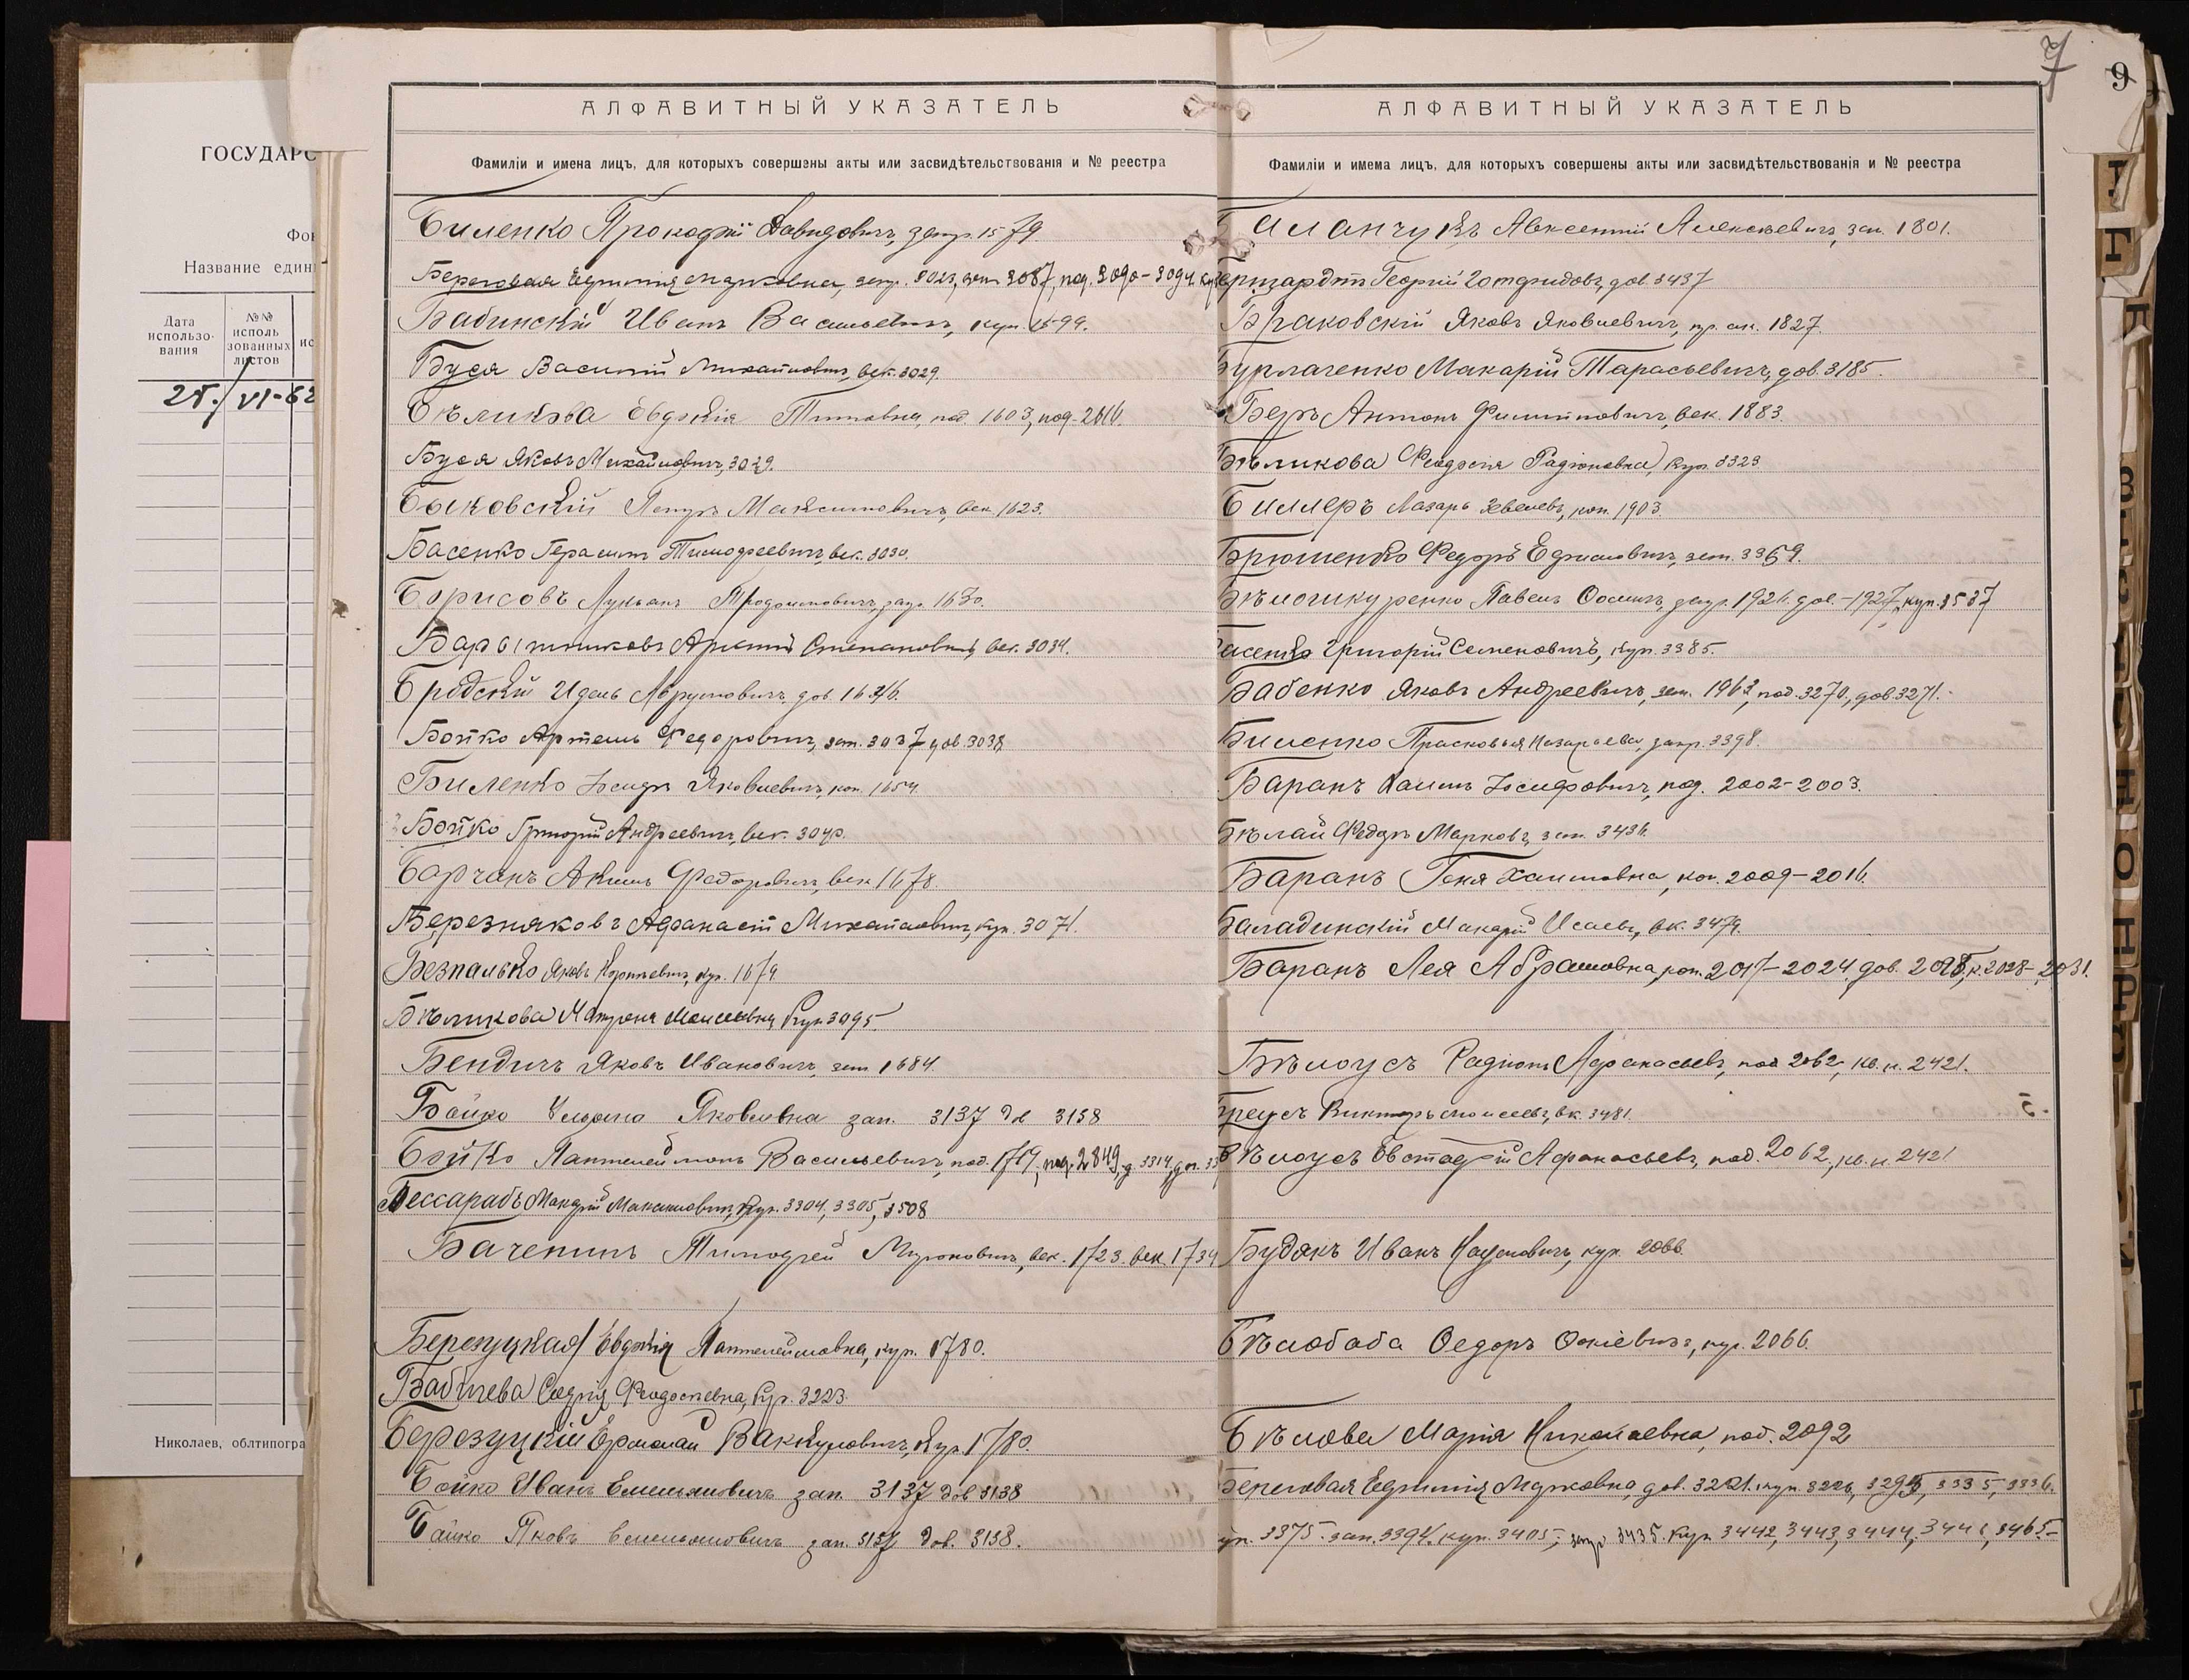 ГОСУДАРС
Фон
Название един
Дата использо-вания
№№ исполь зованных листов
ис
25./VI-62
Николаев, облтипогра
АЛФАВИТНЫЙ УКАЗАТЕЛЬ
Фамиліи и имена лицъ, для которыхъ совершены акты или засвидѣтельствованія и № реестра
Биленко Прокофій Давидовичъ, запр. 1579
Береговая Ефимія Марковна, запр. 3023, 3087, под. 3090-3094
Бабинскій Иванъ Васильевичъ, куп. 1599.
Буся Василій Михайловичъ, век. 3029.
Бѣликова Евдокія Титовна, под. 1603, под. 2616.
Буся Яковъ Михайловичъ, 3029.
Быковскій Петръ Максимовичъ, век. 1623.
Басенко Герасимъ Тимофеевичъ, век. 3030.
Борисовъ Лукьянъ 1630.
Степановичъ, век. 3034.
Бродскій Абрумовичъ, дов. 1646.
Бойко Артемъ Федоровичъ, зап. 3037 дов. 3038
Биленко Іосифъ Яковлевичъ, коп. 1654
Бойко Григорій Андреевичъ, век. 3040.
Акимъ Федоровичъ, век. 1678.
Березняковъ Афанасій Михайловичъ, куп. 3071.
Безпалько Яковъ куп. 1679
Бѣликова Матрена Моисеевна куп. 3095.
Бендичъ Яковъ Ивановичъ, зап. 1684.
Бойко Ульяна Яковлевна зап. 3137 дов 3138
Бойко Пантелеймонъ Васильевичъ, под. 1719, под. 2849, д. 3314, дов.
Бессарабъ Макарій Максимовичъ, куп. 3304, 3305, 3508
Тимофей Мироновичъ, век. 1723. век. 1734
Березуцкая Евдокія Пантелеймовна, куп. 1780.
Бабичева Софія Феодосіевна, кур. 3223.
Березуцкій Ермолай Ваккуловичъ, куп. 1780.
Бойко Иванъ Емельяновичъ зап. 3137 дов 3138
Бойко Яковъ Емельяновичъ зап. 3137 дов. 3138.
7
9
АЛФАВИТНЫЙ УКАЗАТЕЛЬ
Фамиліи и имема лицъ, для которыхъ совершены акты или засвидѣтельствованія и № реестра
Баланчукъ Авксентій Алексѣевичъ, зап. 1801.
Георгій Готфридовъ, дов. 3437
Браковскій Яковъ Яковлевичъ, 1827.
Бурлаченко Макарій Тарасьевичъ, дов. 3185.
Беръ Антонъ Филипповичъ, век. 1883.
Бѣликова Феодосія Радіоновна, куп. 3323
Биллеръ Лазарь коп. 1903
Федоръ Ефимовичъ, зап. 3369.
Павелъ запр. 1926. дов. - 1927, куп. 3537
Басенко Григорій Семеновичъ, куп. 3385.
Бабенко Яковъ Андреевичъ, зап. 1963, под. 3270., дов. 3271.
Биленко Прасковья Назарьева, запр. 3398.
Баранъ Хаимъ Іосифовичъ, под. 2002-2003.
Бѣлай Федоръ Марковъ, зап. 3436.
Баранъ Геня Хаимовна, коп. 2009-2016.
Баладинскій Макарій Исаевъ, вк. 3479.
Баранъ Лея Абрамовна, коп. 2017-2024, дов. 2028-2031.
Бѣлоусъ Радіонъ Афанасьевъ, под 2062, кв. н. 2421.
Викторъ Моисеевъ, вк. 3481.
Бѣлоусъ Евстафій Афанасьевъ, под. 2062, кв. н. 2421
Будакъ Иванъ Наумовичъ, кур. 2066.
Бѣлобаба Ѳедоръ кур. 2066.
Бѣлова Марія Николаевна, под. 2092
Береговая Ефимія Марковна, дов. 3221. куп. 3226, 3335, 3336.
куп. 3375. зап. 3394. куп. 3405, запр. 3435. куп. 3442, 3443, 3444, 3446, 3465.